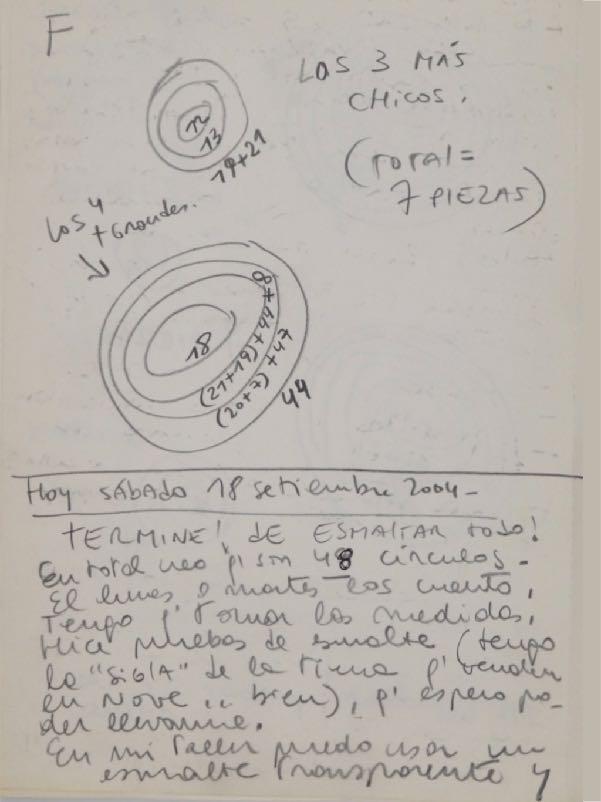 F
LAS 3 MÁS
CHICOS.
(TOTAL =
7 PIEZAS)
12
13
19+21
Los 4
+ Grandes.
18
(21+19)+44+8
(20+7)+47
44
Hoy SÁBADO 18 setiembre 2004-
TERMINE! DE ESMALTAR TODO!
En total creo q' son 48 círculos-
El lunes o martes los cuento,
Tengo q' tomar las medidas,
Hice pruebas de esmalte (tengo
la "SiglA" de la tierra q' venden
en Nove .. bien), q' espero po-
der llevarme.
En mi Taller puedo usar un
esmalte Transparente y